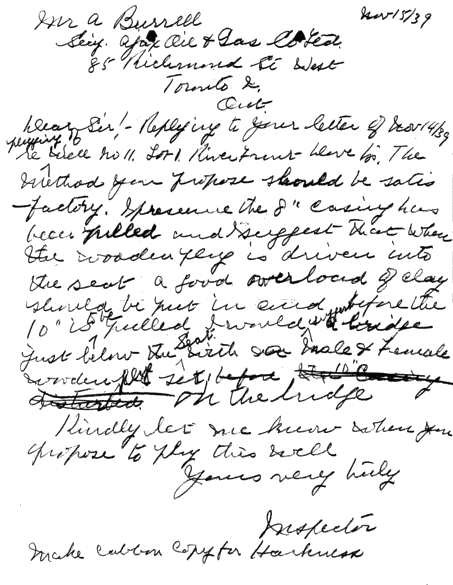 Mr A Burrell Nov 15/39
Secy. Ajax Oil & Gas Co Ltd.
85 Richmond St West
Toronto 2.
Ont
Dear Sir! - Replying to your letter of Nov 14/39
plugging of
re Well No 11. Lot 1. River Front The
method you propose should be satis
-factory. I presume the 8" casing has
been pulled and I suggest that when
the wooden plug is driven into
the seat a good overload of clay
should be put in and before the
10" is pulled I would suggest a bridge
just below the seat with Male & Female
wooden plug set before casing
disturbed on the bridge
Kindly let me know when you
propose to plug this well
Yours very truly
Inspector
Make carbon copy for Harkness